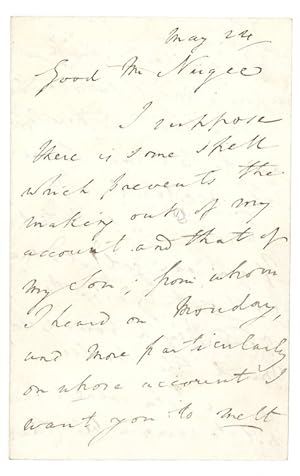 May 24
Good Mr Nugee
I suppose
there is some spell
which prevents the
making out of my
account and that of
my Son; from whom
I heard on Monday,
and more particularly
on whose account I
want you to melt